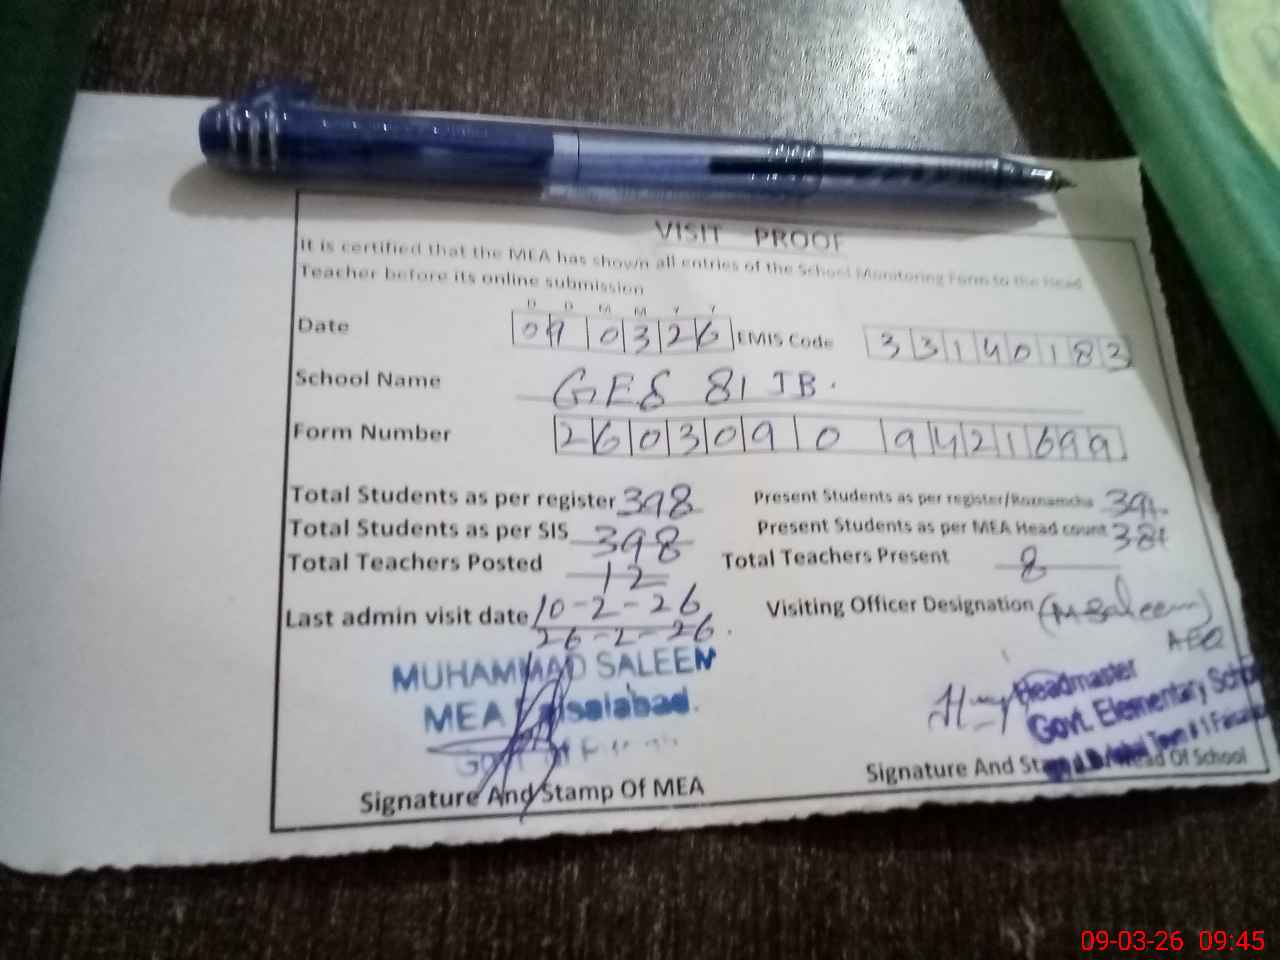 VISIT PROOF
It is certified that the MEA has shown all entries of the School Monitoring Form to the Head
Teacher before its online submission
D D M M Y Y
Date 09 03 26 EMIS Code 33140183
School Name GES 81 JB.
Form Number 26030909421699
Total Students as per register 398 Present Students as per register/Roznamcha
Total Students as per SIS 398 Present Students as per MEA Head count
Total Teachers Posted 12 Total Teachers Present 8
Last admin visit date 10-2-26 Visiting Officer Designation (M Saleem)
26-2-26. AEO
MUHAMMAD SALEEM Headmaster
MEA Faisalabad. Govt. Elementary School
Signature And Stamp Of MEA Signature And Stamp Head Of School
09-03-26 09:45